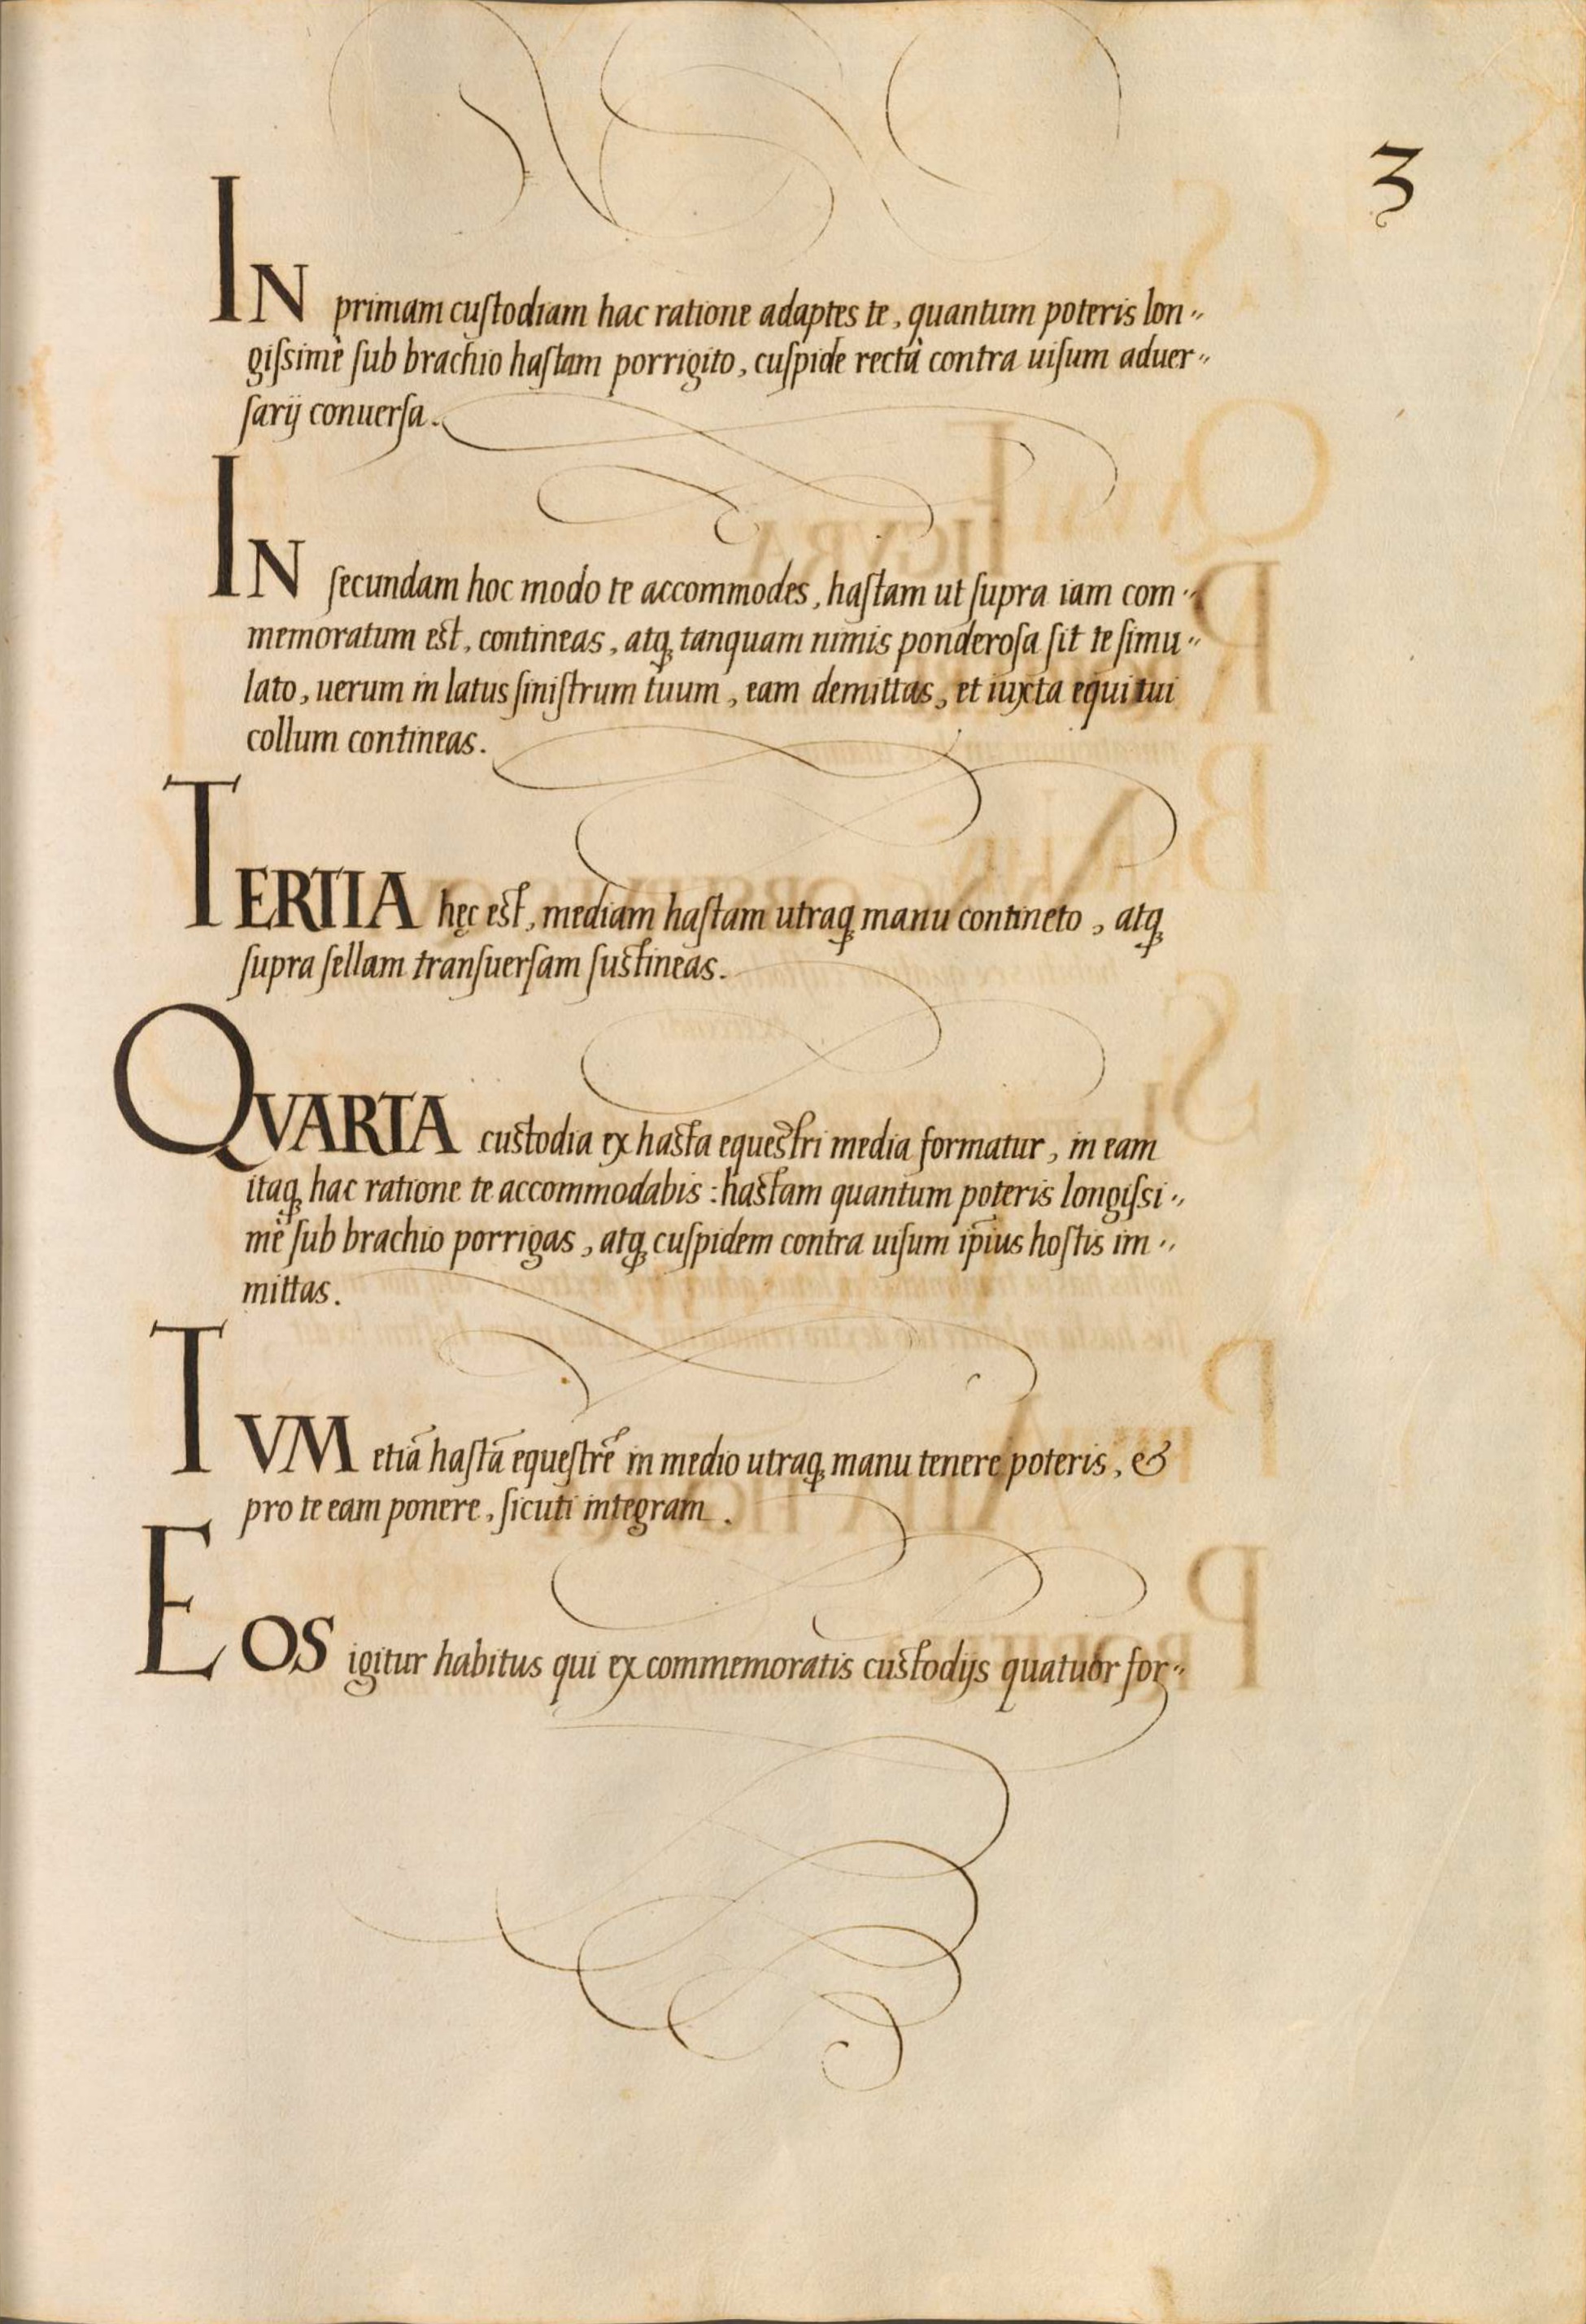 3
IN primam cuſtodiam hac ratione adaptes te, quantum poteris lon〃
giſsimè ſub brachio haſtam porrigito, cuſpide rectà contra uiſum aduer〃
ſarij conuerſa.
IN ſecundam hoc modo te accommodes, haſtam ut ſupra iam com〃
memoratum eſt, contineas, atq; tanquam nimis ponderoſa ſit te ſimu〃
lato, uerum in latus ſiniſtrum tuum, eam demittas, et iuxta equi tui
collum contineas.
TERTIA hęc eſt, mediam haſtam utraq; manu contineto, atq;
ſupra ſellam tranſuerſam ſuſtineas.
QVARTA cuſtodia ex haſta equeſtri media formatur, in eam
itaq; hac ratione te accommodabis: haſtam quantum poteris longiſsi〃
mè ſub brachio porrigas, atq; cuſpidem contra uiſum ip̄ius hoſtis im〃
mittas.
TVM etiā haſtā equeſtrē in medio utraq; manu tenere poteris, &
pro te eam ponere, ſicuti integram.
EOS igitur habitus qui ex commemoratis cuſtodijs quatuor for〃